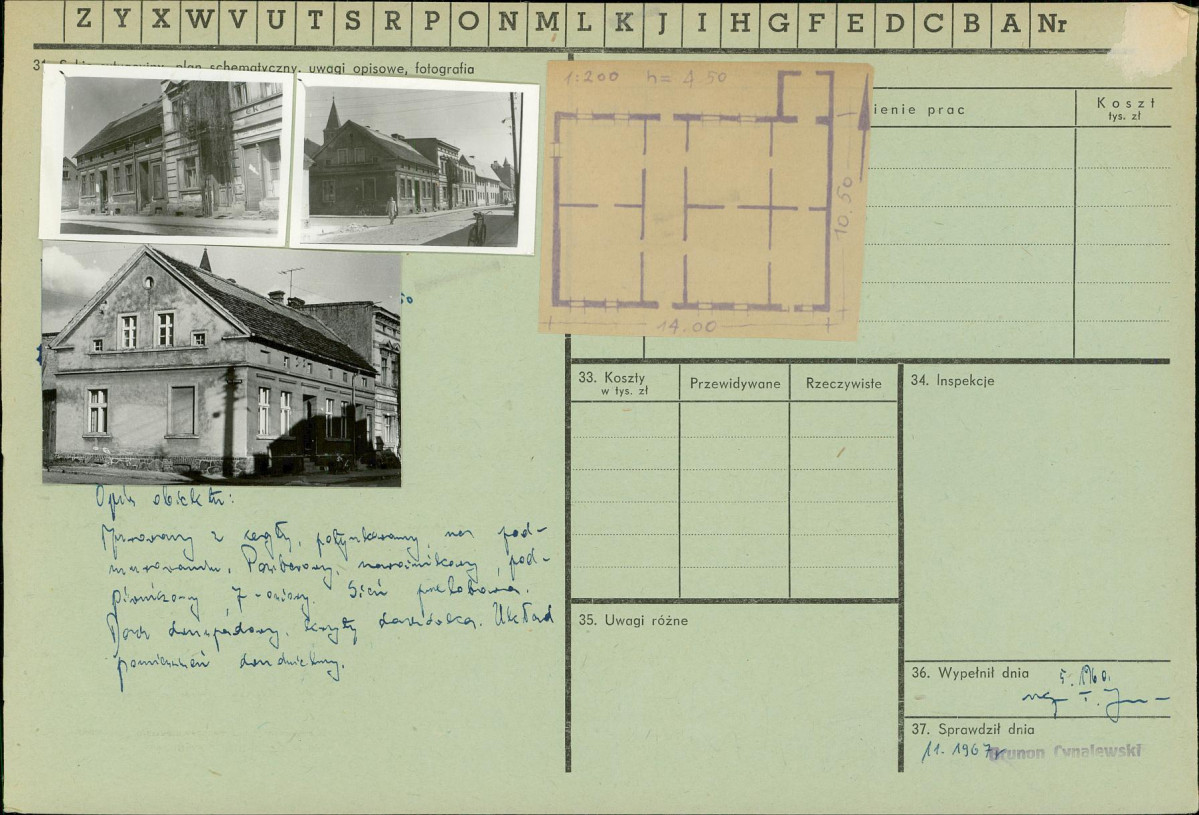 Z Y X W V U T S R P O N M L K J I H G F E D C B A Nr
31. schematyczny, uwagi opisowe, fotografia
1:200 h= 4.50
10.50
14.00
ienie prac
Koszt
tys. zł
33. Koszty
w tys. zł
Przewidywane
Rzeczywiste
34. Inspekcje
Opis obiektu:
Murowany z cegły, potynkowany, na pod-
murowaniu. Parterowy, narożnikowy, pod-
piwniczony 7-osiowy. Sień przelotowa.
Dach dwuspadowy, kryty dachówką. Układ
pomieszczeń
35. Uwagi różne
36. Wypełnił dnia
5.1960.
mgr
37. Sprawdził dnia
11. 1967
Brunon Cynalewski